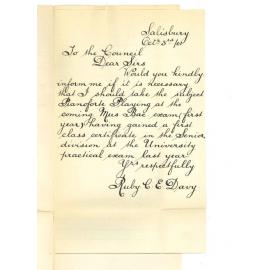 Salisbury
Oct 5th /01
To the Council
Dear Sirs
Would you kindly
inform me if it is necessary
that I should take the subject
Pianoforte Playing at the
coming Mus Bac exam (first
year) having gained a first
class certificate in the Senior
division at the University
practical exam last year
Yrs respectfully
Ruby C E Davy